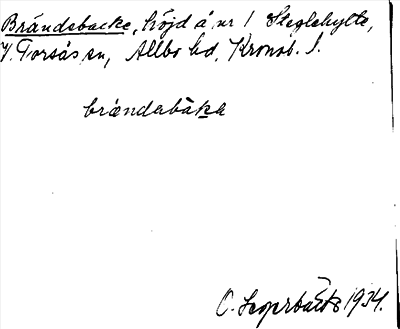 Brändebacke, höjd å nr 1 Steglehylte,
V. Torsås sn, Allbo hd, Kronob. l.
brændabàka
C. Segerbäck 1934.